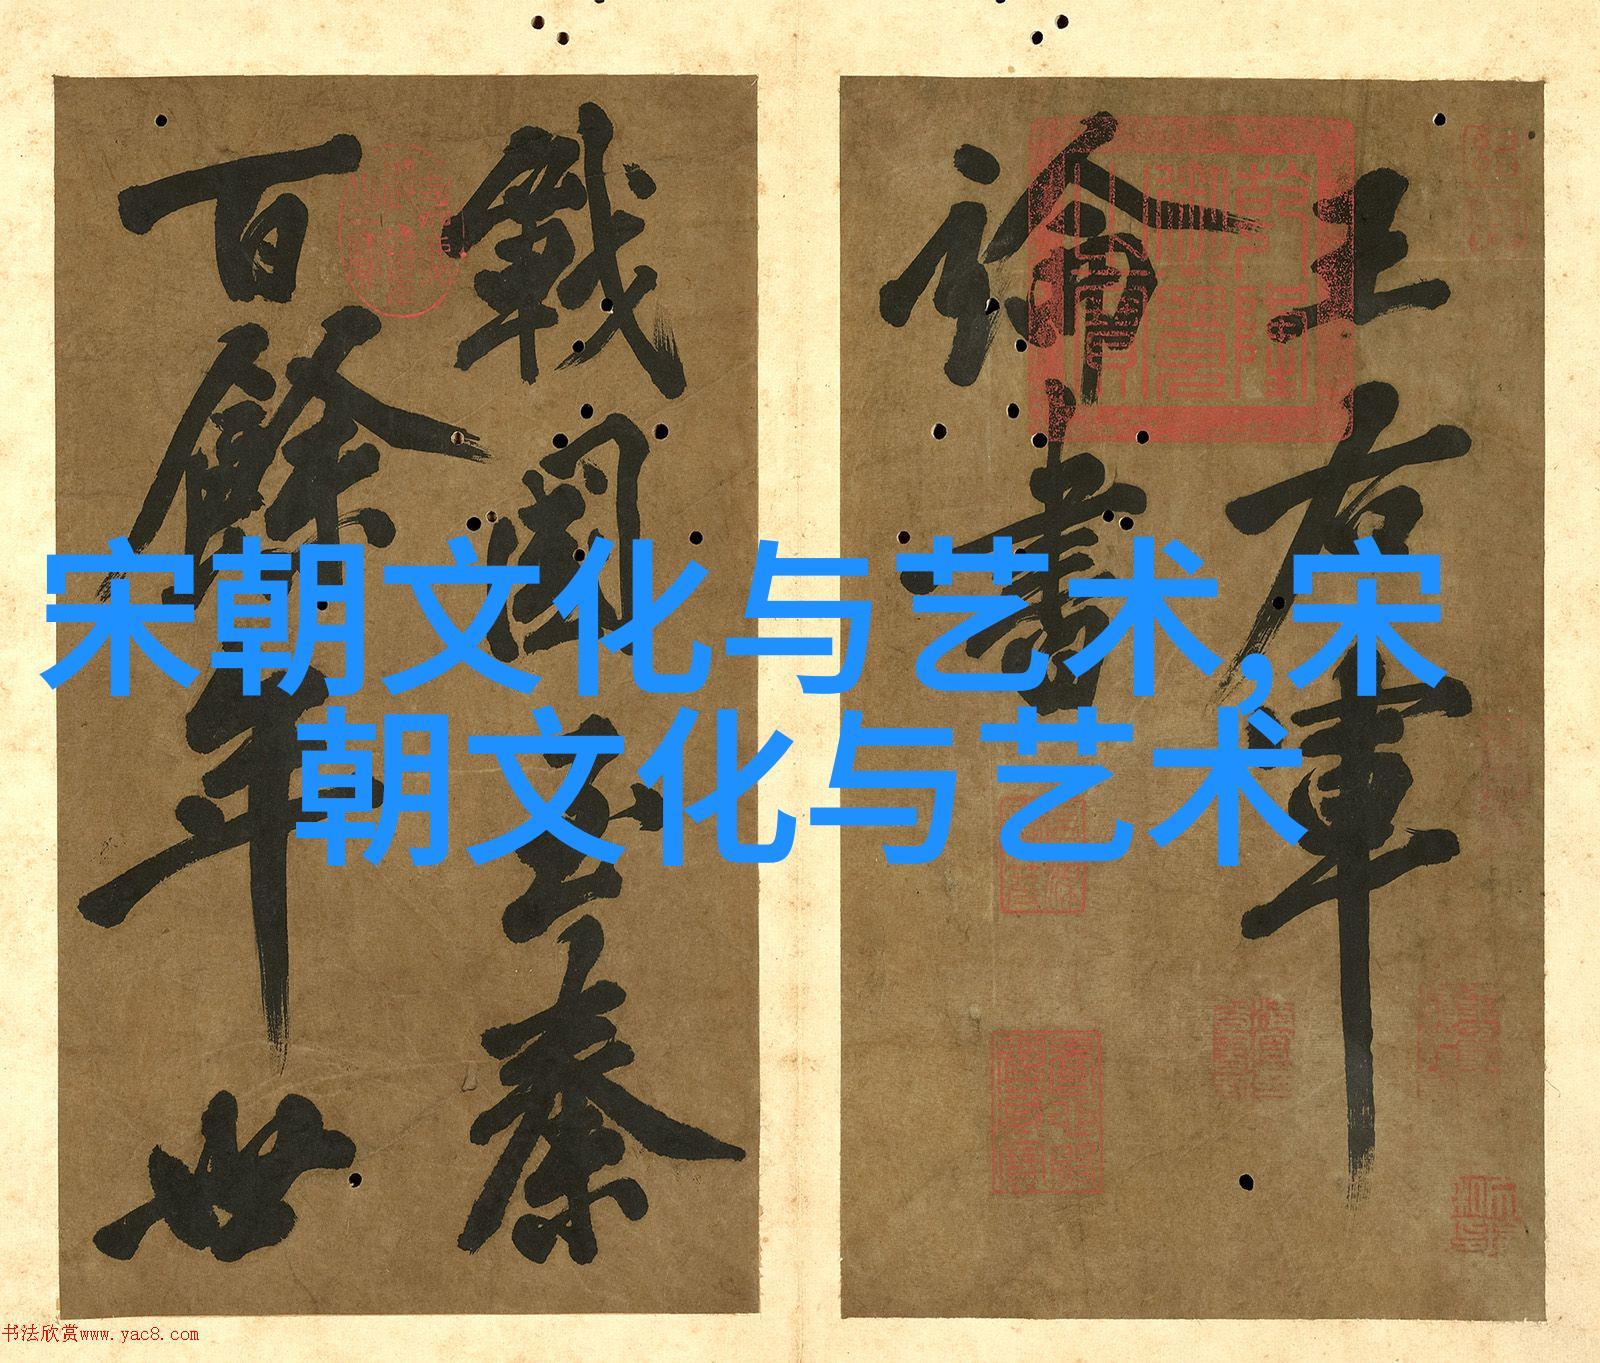 王右軍
論書
戰國至秦
百餘年世
宋朝文化与艺术,宋
朝文化与艺术
书法欣赏www.yac8.com